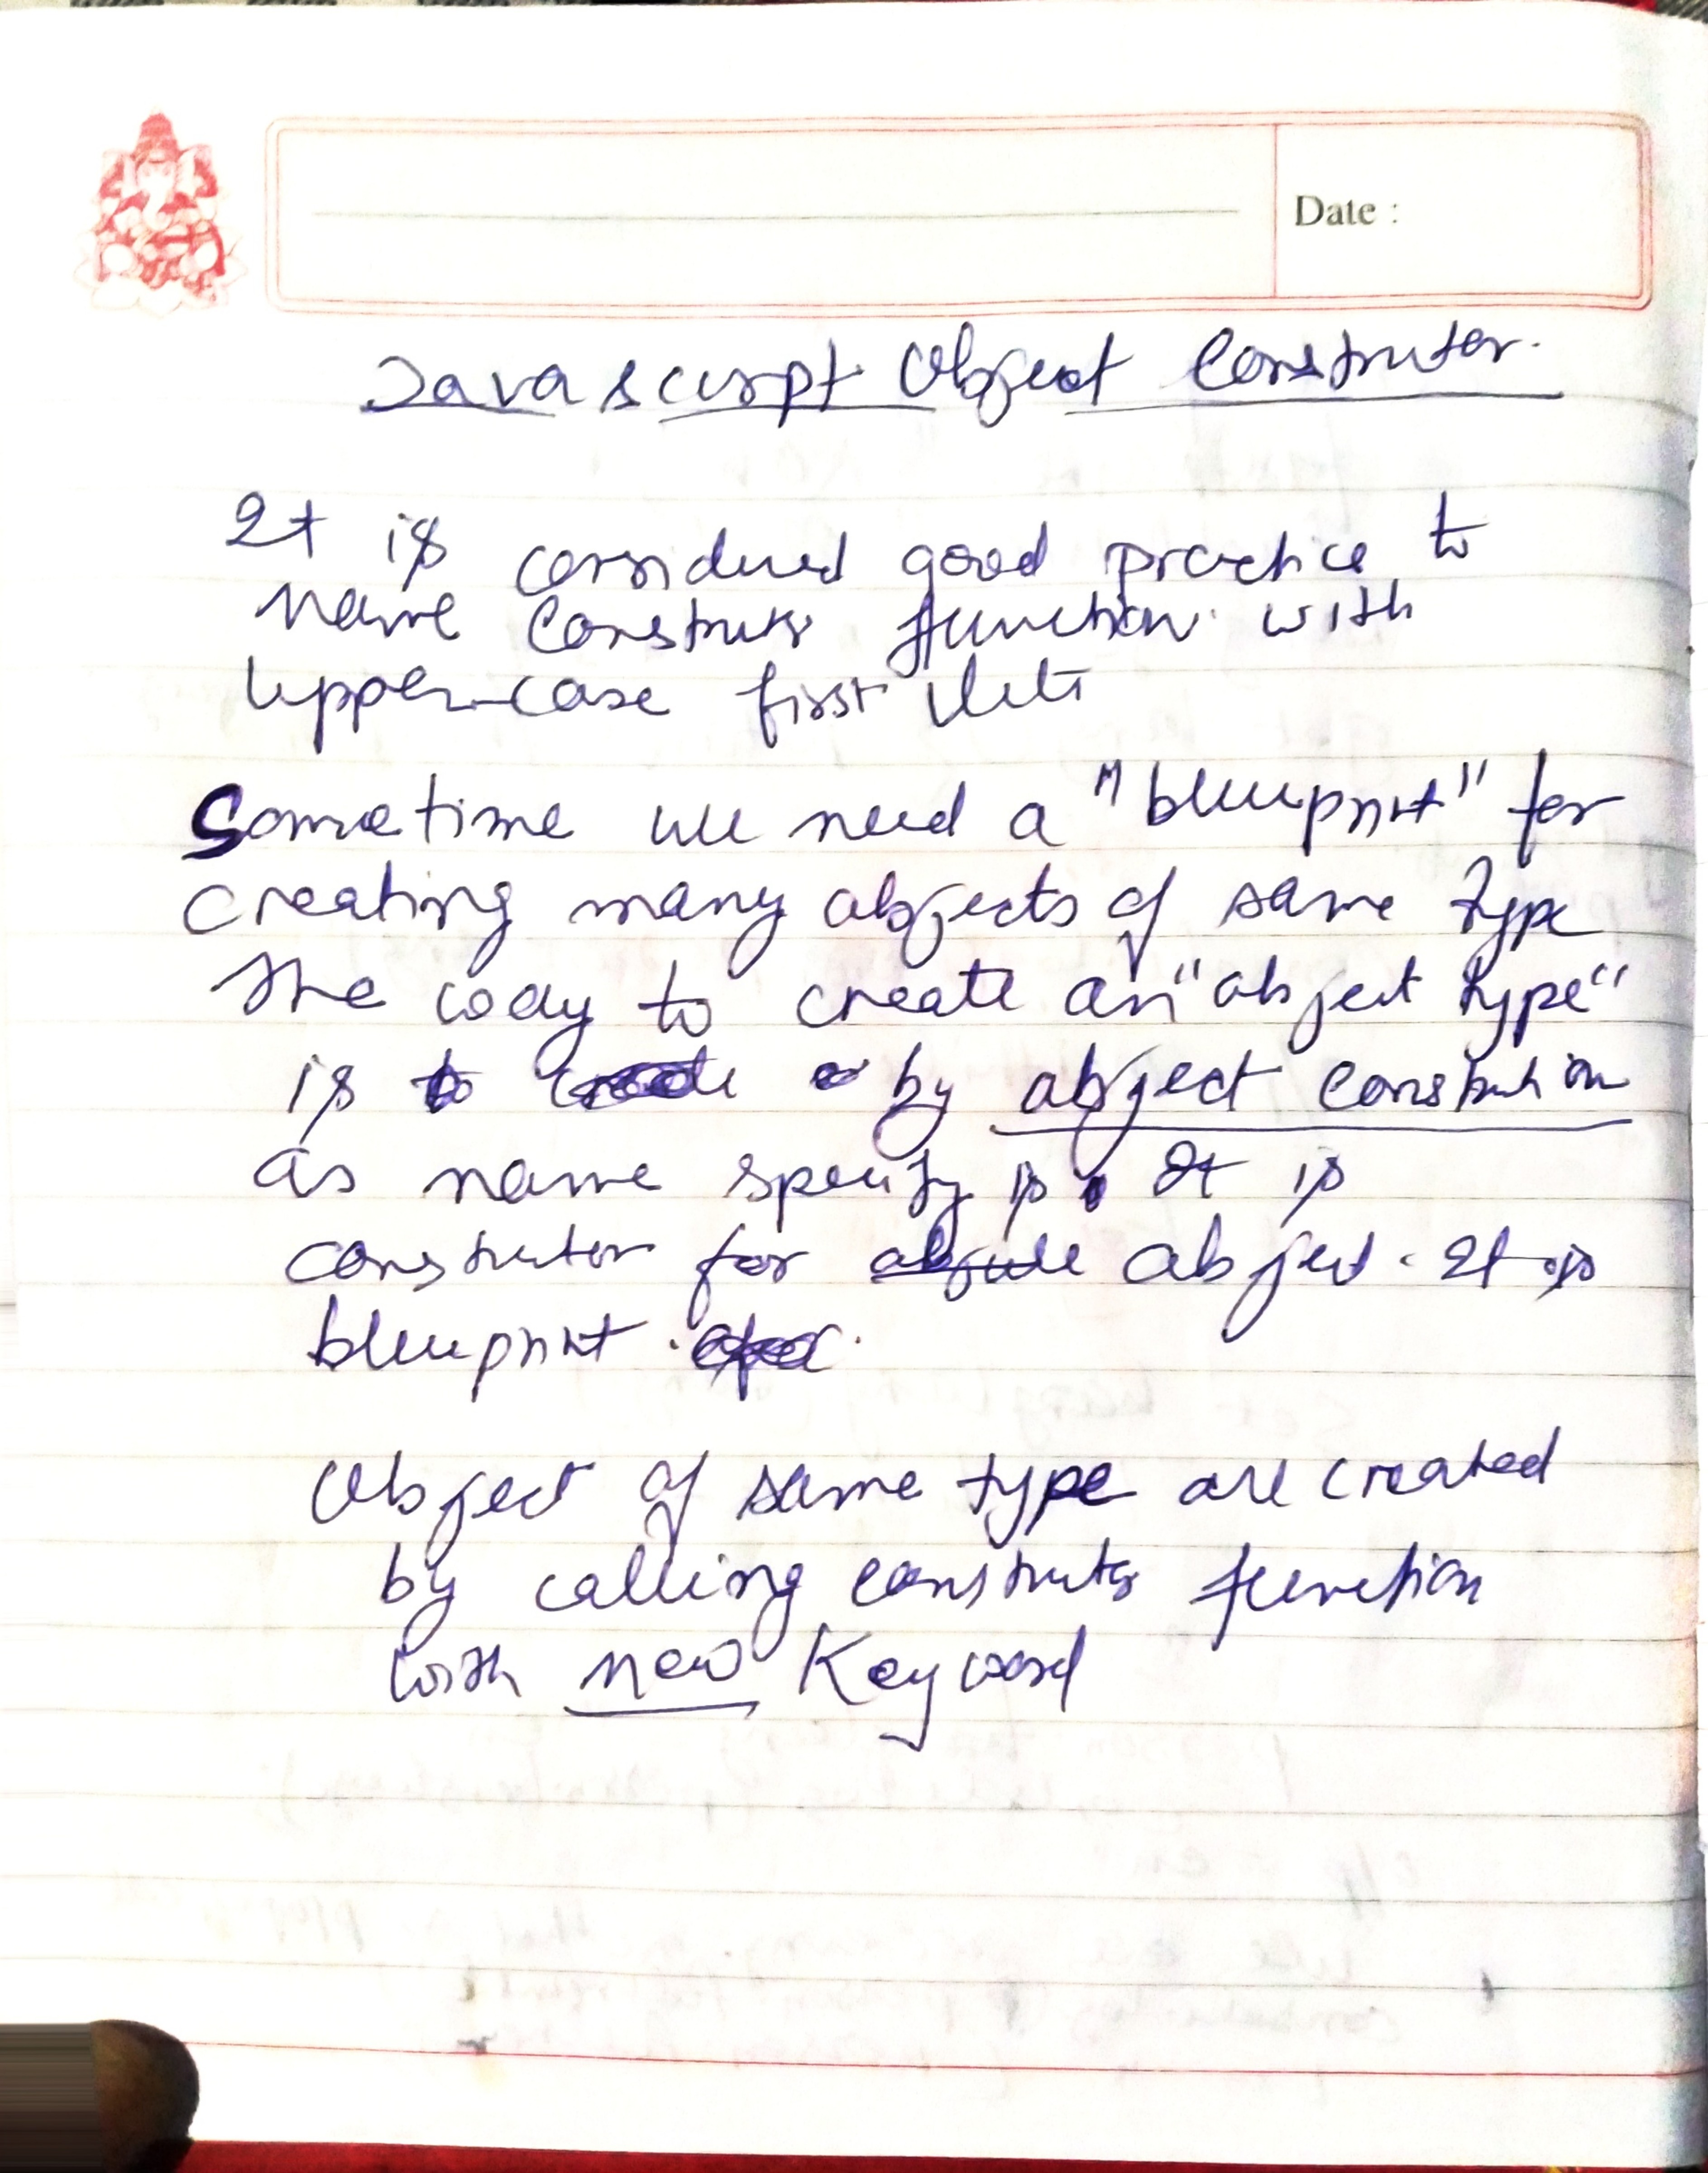 Date :
Javascript Object Construtor.
It is considered good practice to
name Construtor function with
upper-case first
Sometime we need a "blueprint" for
creating many objects of same type
The way to create an "object type"
is by object constrution
as name specify is It is
construtor for object. It is
blueprint
Object of same type are created
by calling construtor function
with new Keyword